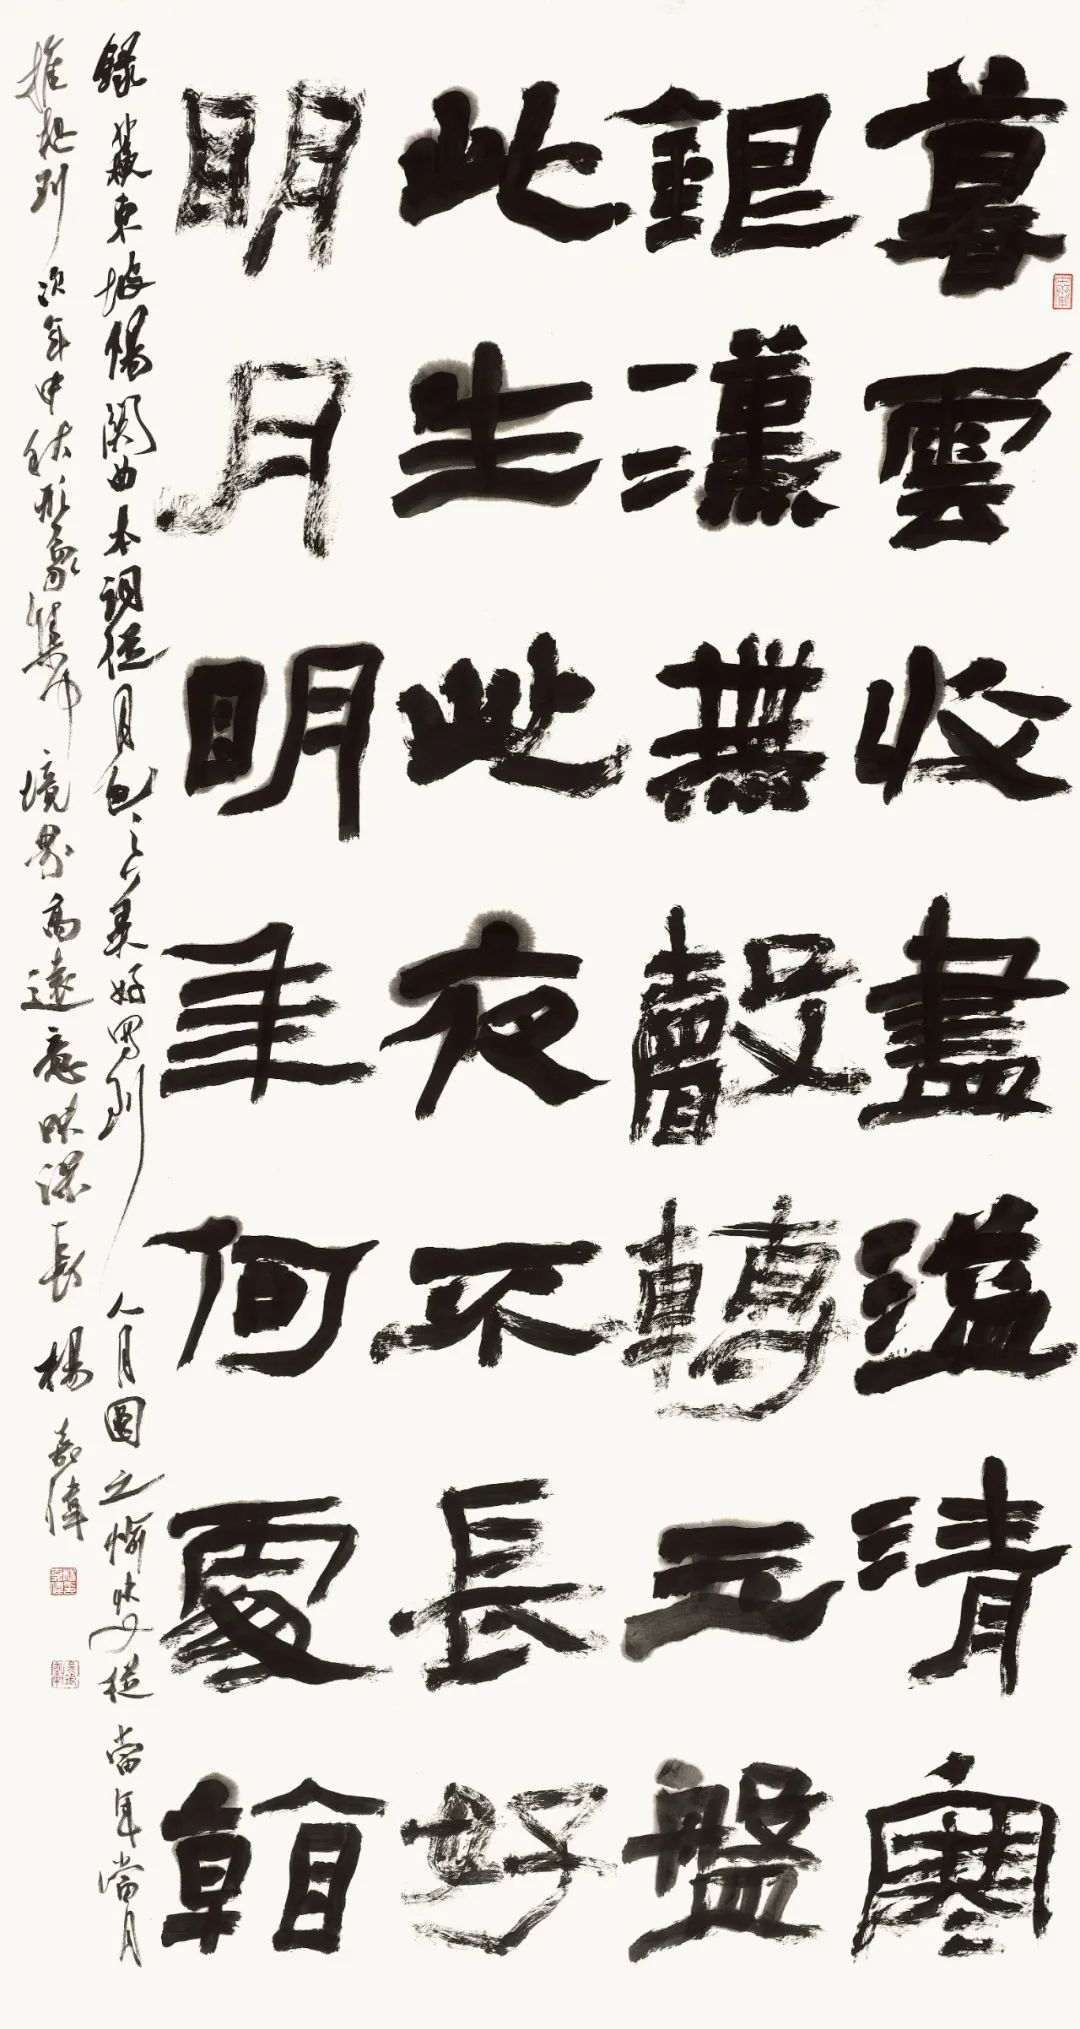 暮雲收盡溢清寒
銀漢無聲轉玉盤
此生此夜不長好
明月明年何處看
錄蘇東坡陽關曲本詞從月色之美好寫到人月圓之愉快又從當年當月
推想到次年中秋形象集中境界高遠意味深長 楊嘉偉